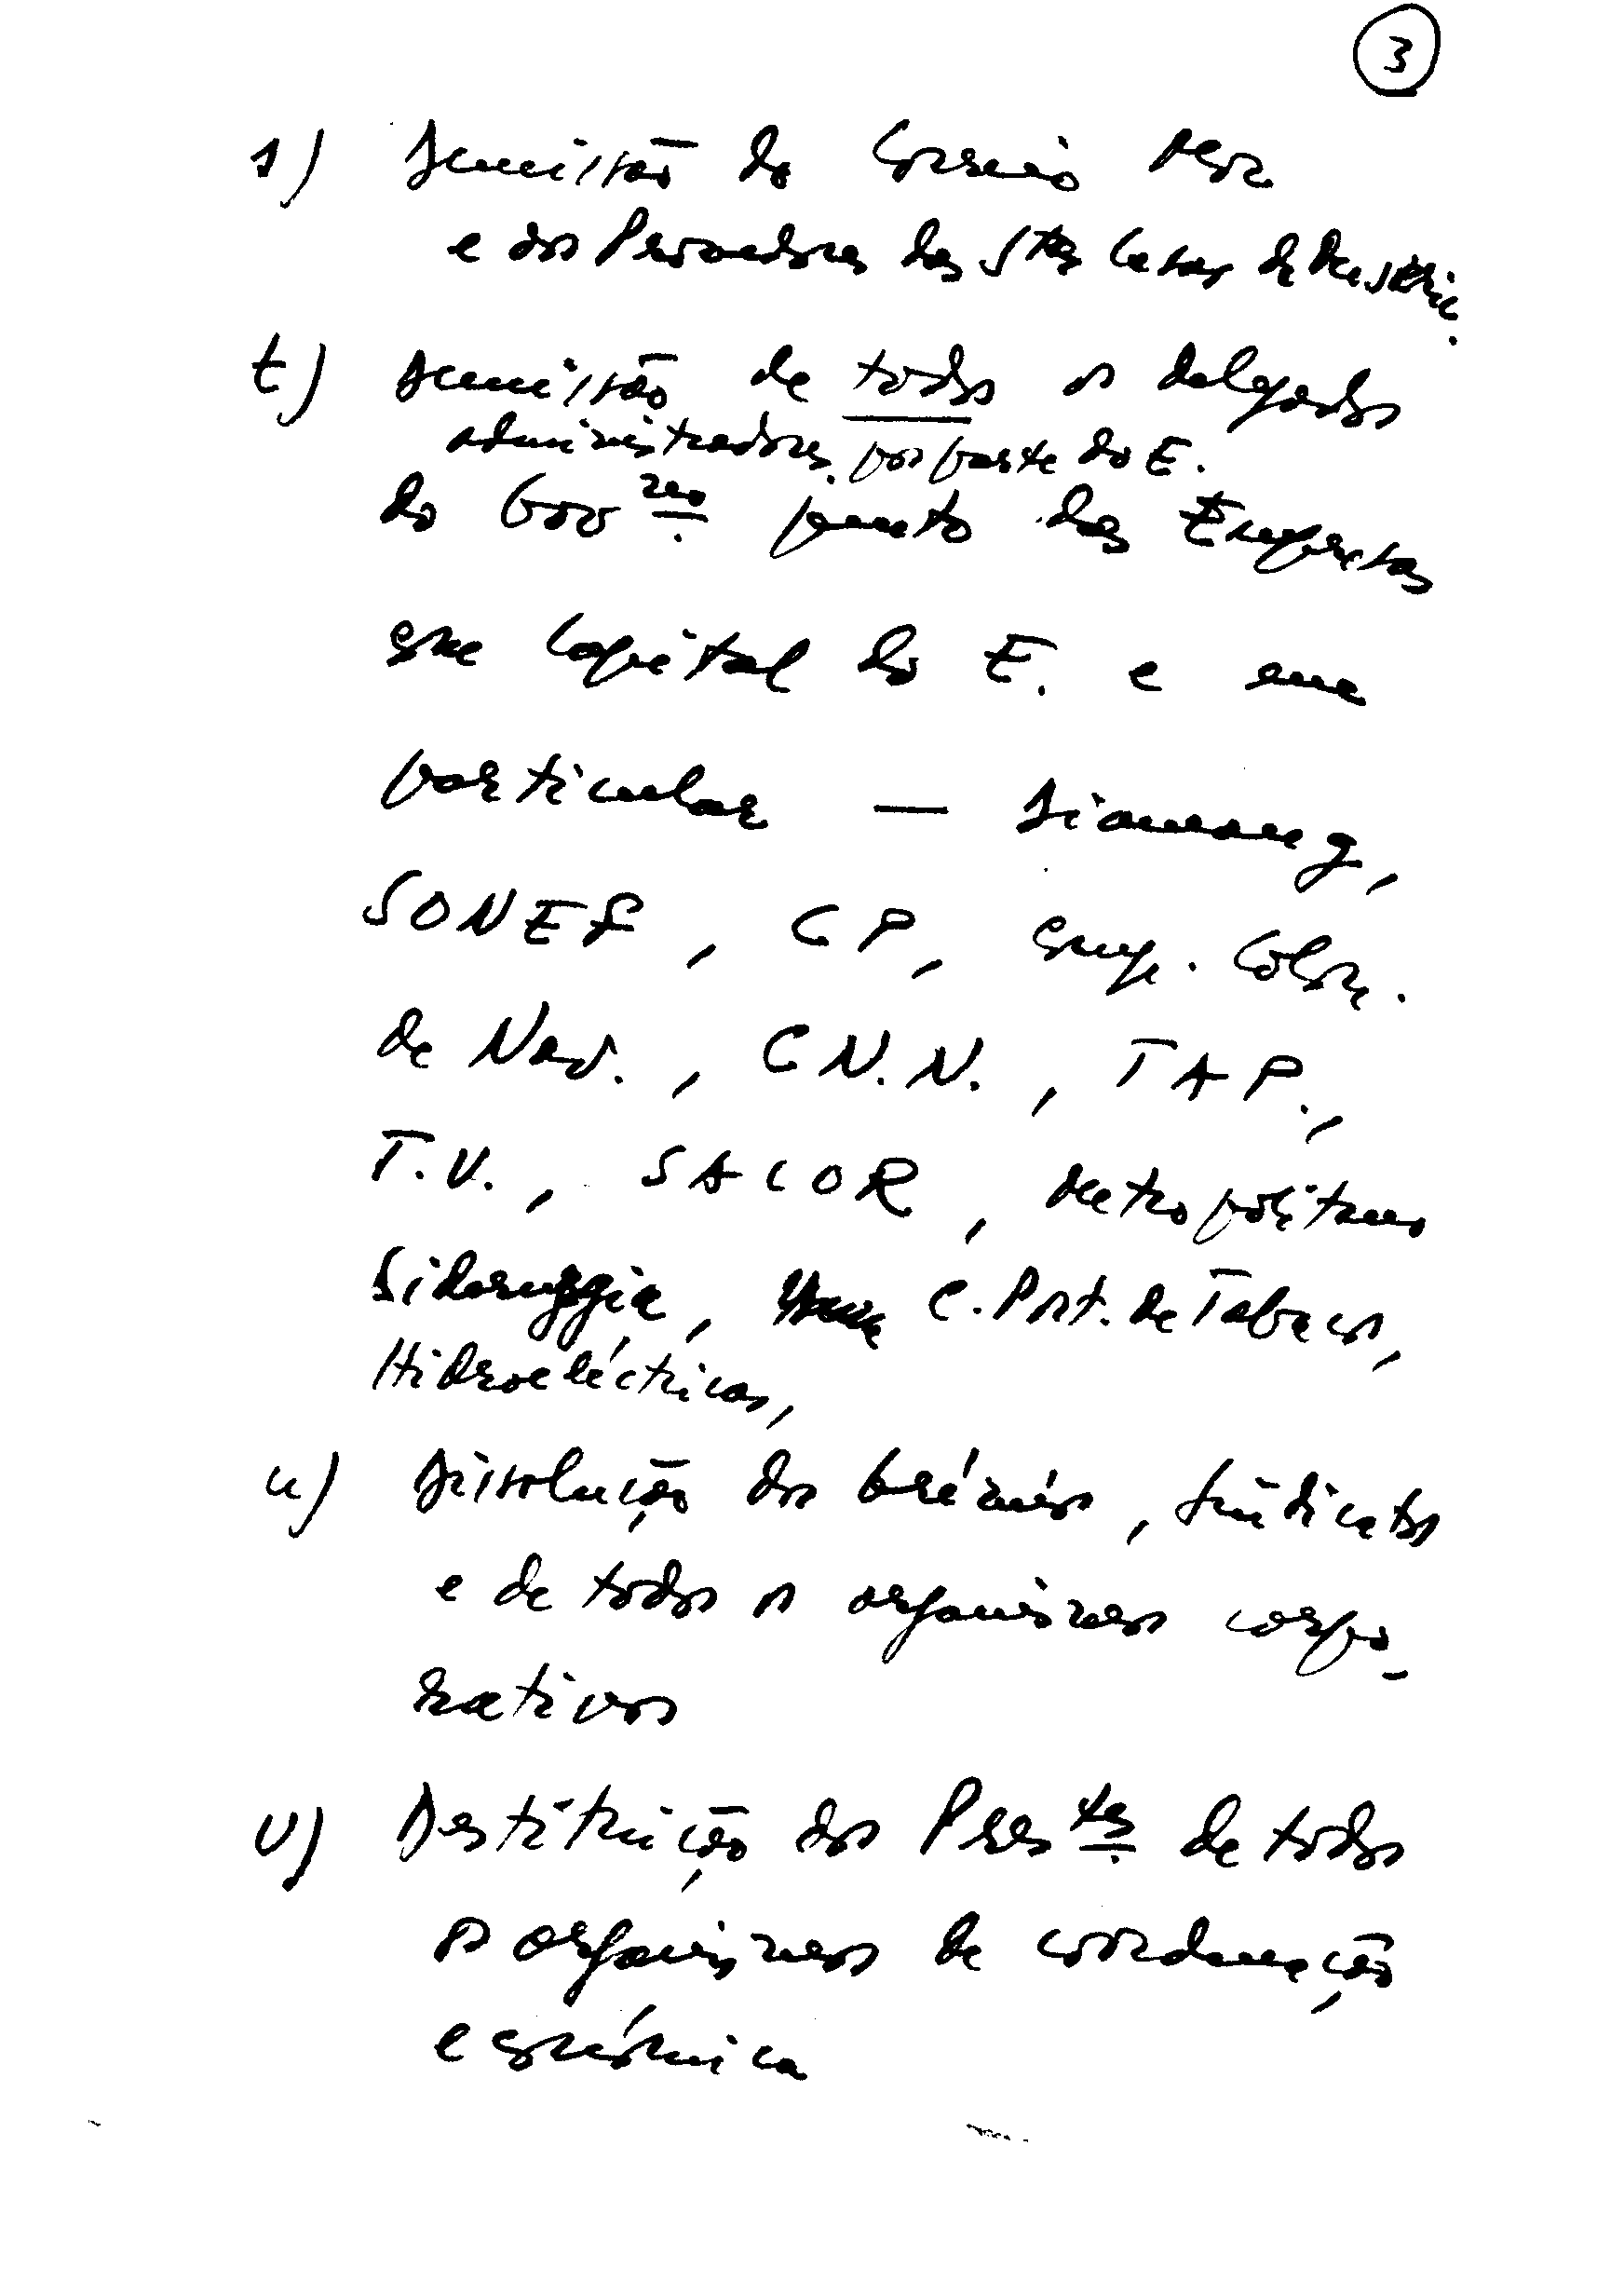 3
s) Demissão do Correio Mor
e dos Provedores das Stas Casas de Misericª.
t) Demissão de todos os delegados
administradores por parte do E.
do Govrno. junto das Empresas
com Capital do E. e em
particular — Diamang,
SONEF, CP, Comp. Colon.
de Nav., C.N.N., TAP.,
T.V., SACOR, Metropolitano
Siderurgia, C. Port. de Tabacos,
Hidroeléctricas,
u) Dissolução dos Grémios, Sindicatos
e de todos os organismos corpo-
rativos
v) Destituição dos Prestes. de todos
os organismos de coordenação
económica